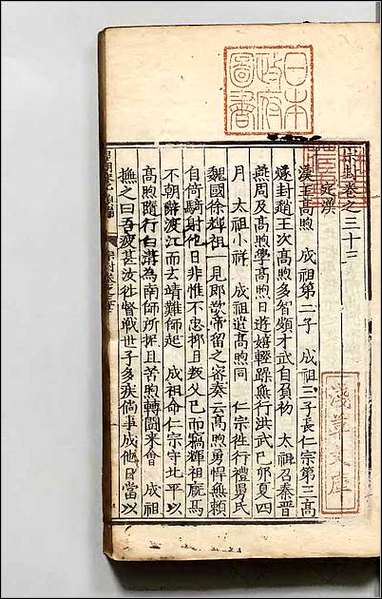 日本政府圖書
宗封卷之三十二
定漢
淺草文庫
漢王高煦 成祖第二子 成祖三子長仁宗第三高
燧封趙王次高煦多智頗才武自負初 太祖召秦晉
燕周及高煦學高煦日遊嬉輕躁無行洪武己卯夏四
月 太祖小祥 成祖遣高煦同 仁宗徃行禮舅氏
魏國徐輝祖一見即欲帝留之密奏云高煦勇悍無賴
自倚騎射他日非惟不忠抑且叛父已而竊輝祖廄馬
不朝辭渡江而去靖難師起 成祖命仁宗守北平以
高煦隨行白溝為南師所扼且苦煦轉鬪來會 成祖
撫之曰吾疲甚汝徃督戰世子多疾倘事成他日當以